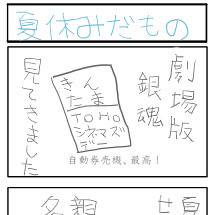 夏休みだもの
劇場版
銀魂
きん
たま
TOHO
シネマズ
デー
見てきました
自動券売機、最高!
夏
親